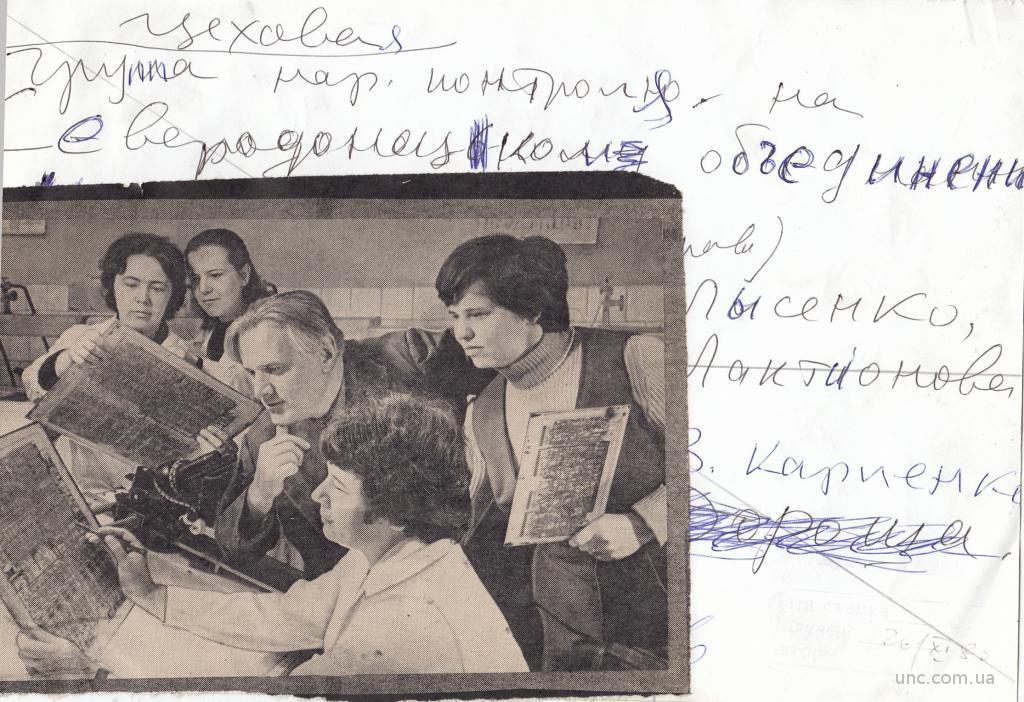 цеховая
Группа нар. контроля на
Северодонецком объединени
нова)
Лысенко,
Лактионова
В. Карпенко
Дата съемки
26/XI 80
unc.com.ua